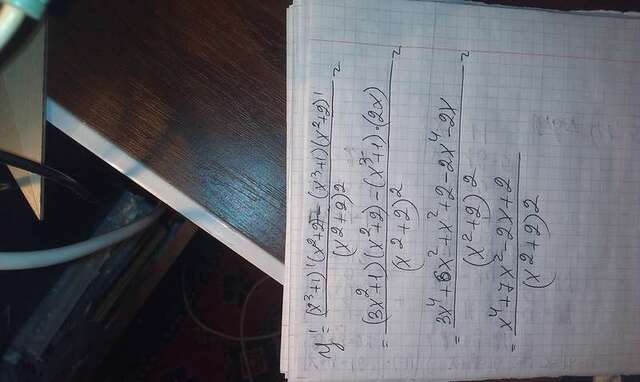 y' = ((x³+1)'(x²+2) - (x³+1)(x²+2)')/(x²+2)² =
= ((3x²+1)(x²+2) - (x³+1)·(2x))/(x²+2)² =
= (3x⁴+6x²+x²+2-2x⁴-2x)/(x²+2)² =
= (x⁴+7x²-2x+2)/(x²+2)²